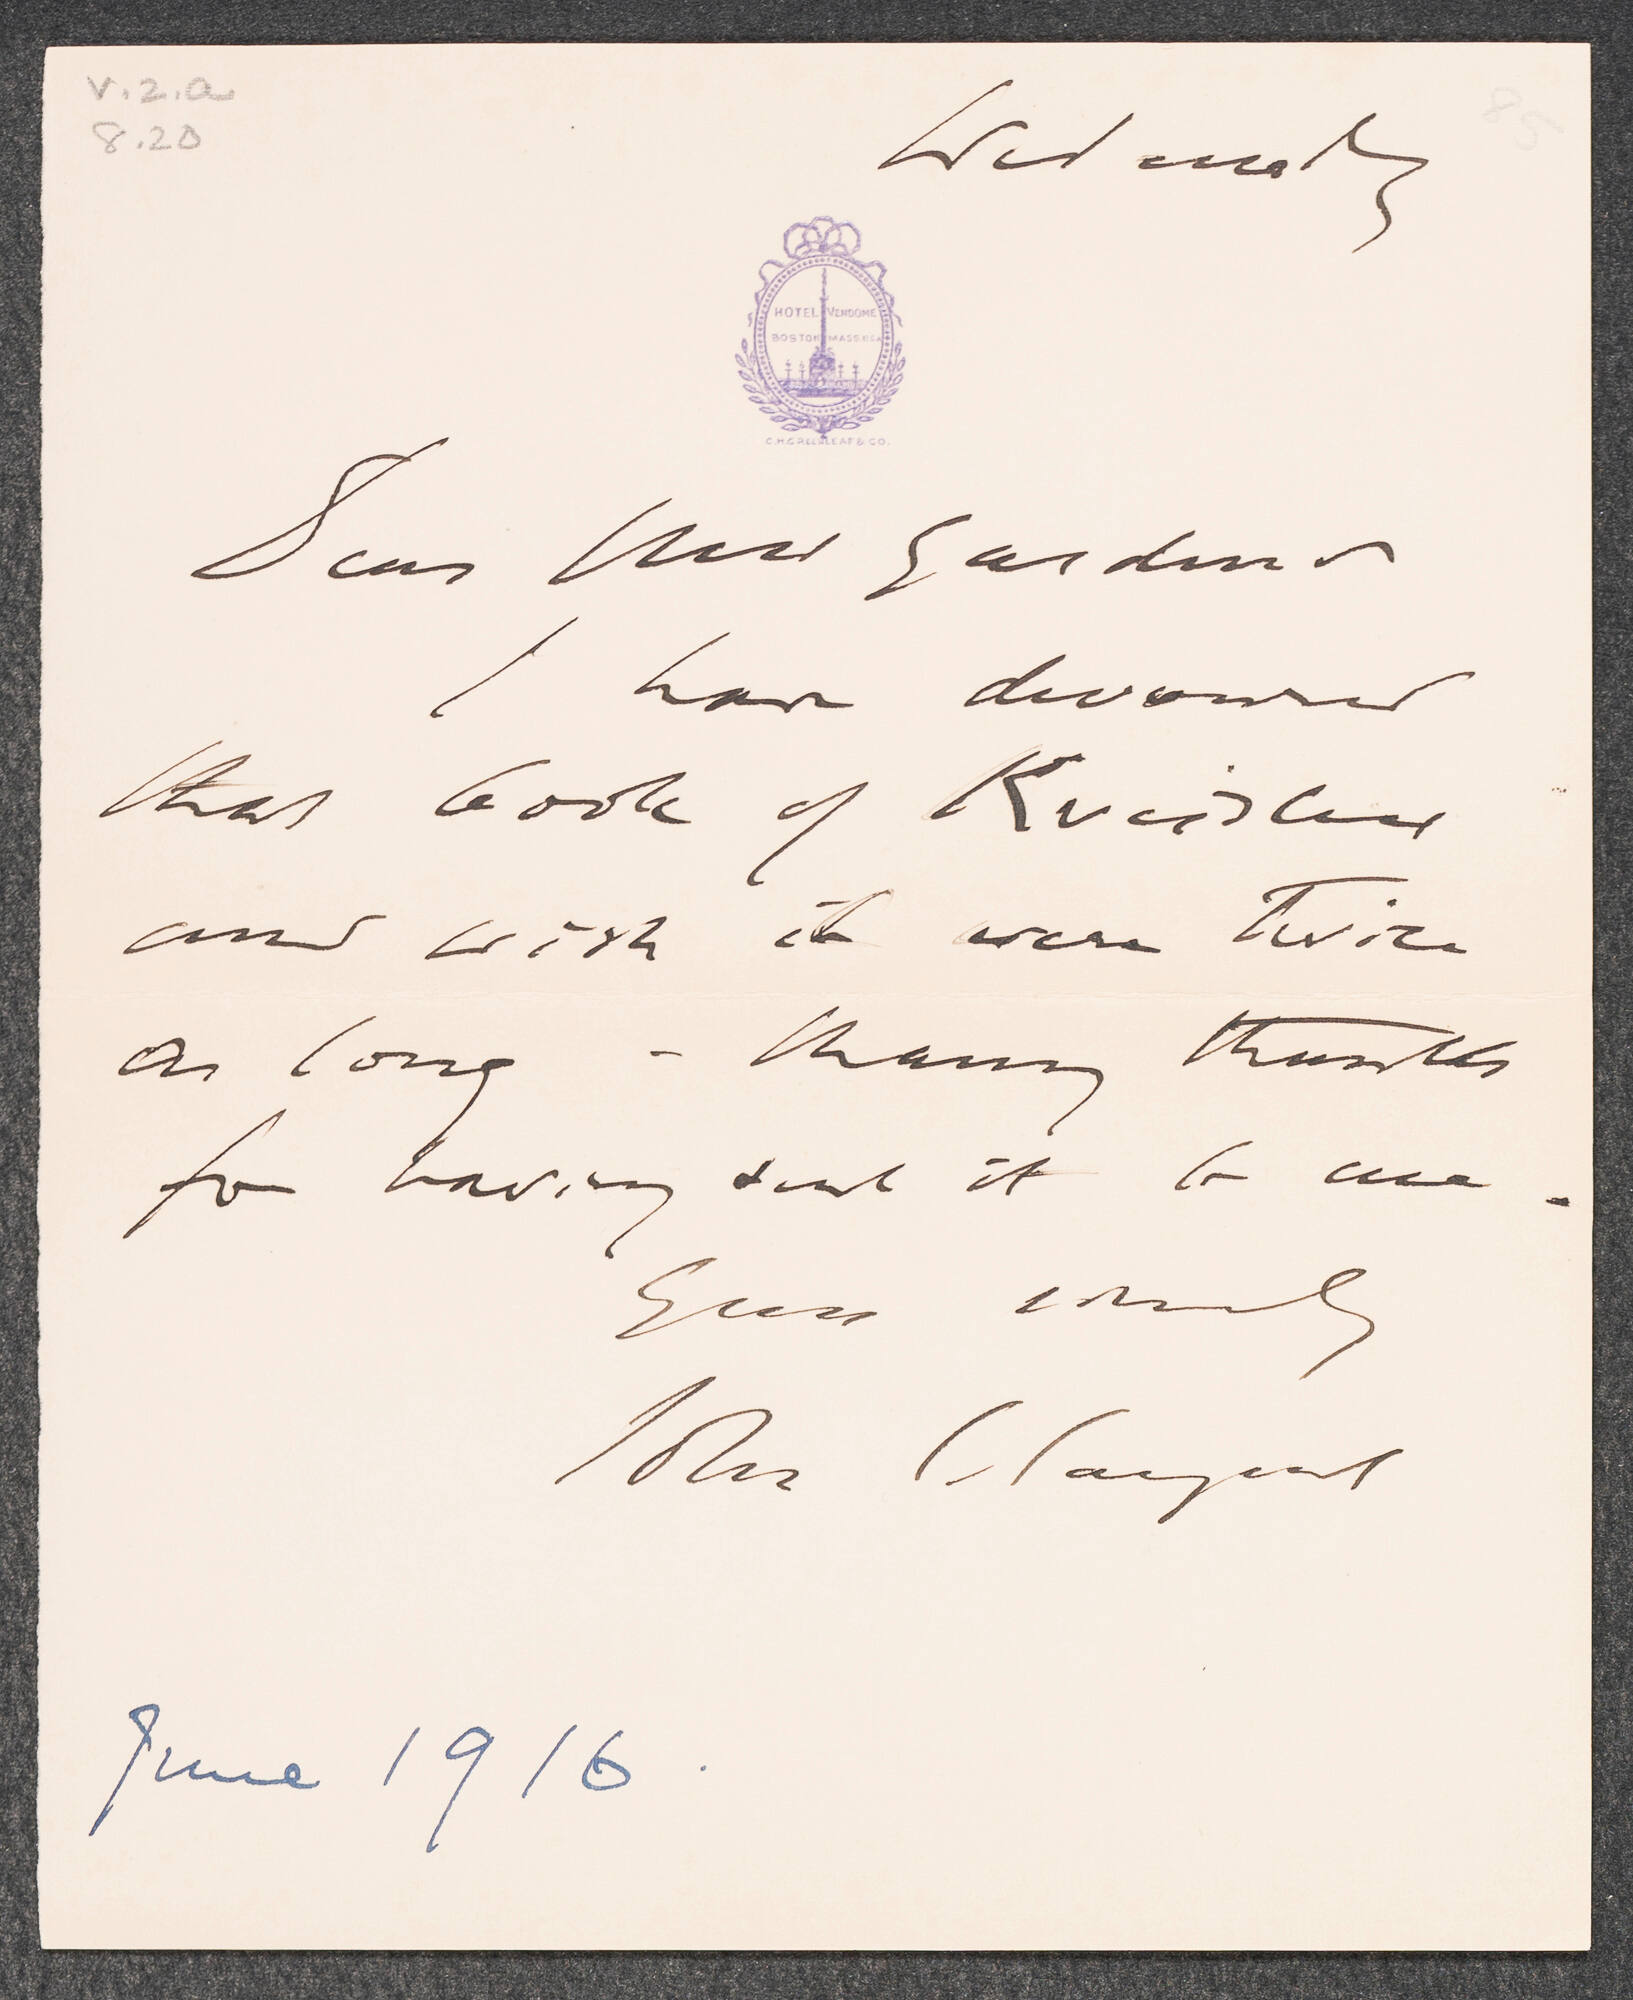 v.2.a
8.20
85
Wednesday
HOTEL VENDOME
BOSTON MASS. USA
C.H. GREENLEAF & CO.
Dear Mrs Gardner
I have devoured
that book of Kreisler's
and wish it were twice
as long - Many thanks
for having sent it to me.
Yours sincerely
John S. Sargent
June 1916.